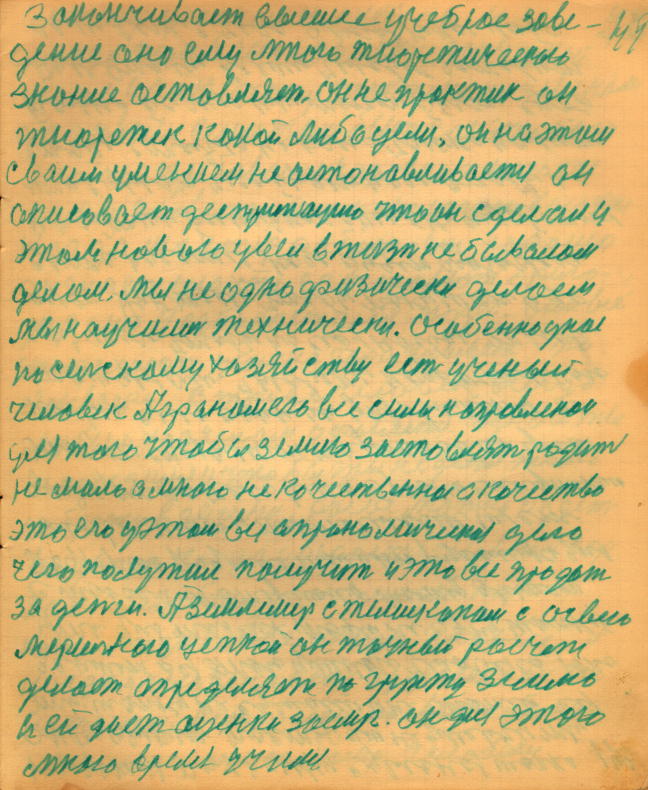 Закончивает высшее учебное заве-
дение оно ему много тиоретического
знание оставляет. он не практик он
тиоретек какой либо цели, он на этом
своим умением не остонавливается он
описовает что он сделал и
этом нового увел в жизн не бывалом
делом. мы не одно физически делаем
мы научились технически. особенно
по сельскому хозяйству ест ученый
человек Аграном его все силы направленой
для того чтобы землю заставлят родит
не мало а много не качественно а качество
это его у этом все аграномическая дело
чего получил получит и это все продат
за денги. А землемер с телископом с
мерилного цепкой он точный расчет
делает определяет по грунту землю
и ей дает оценки заемр. он для этого
много время учился